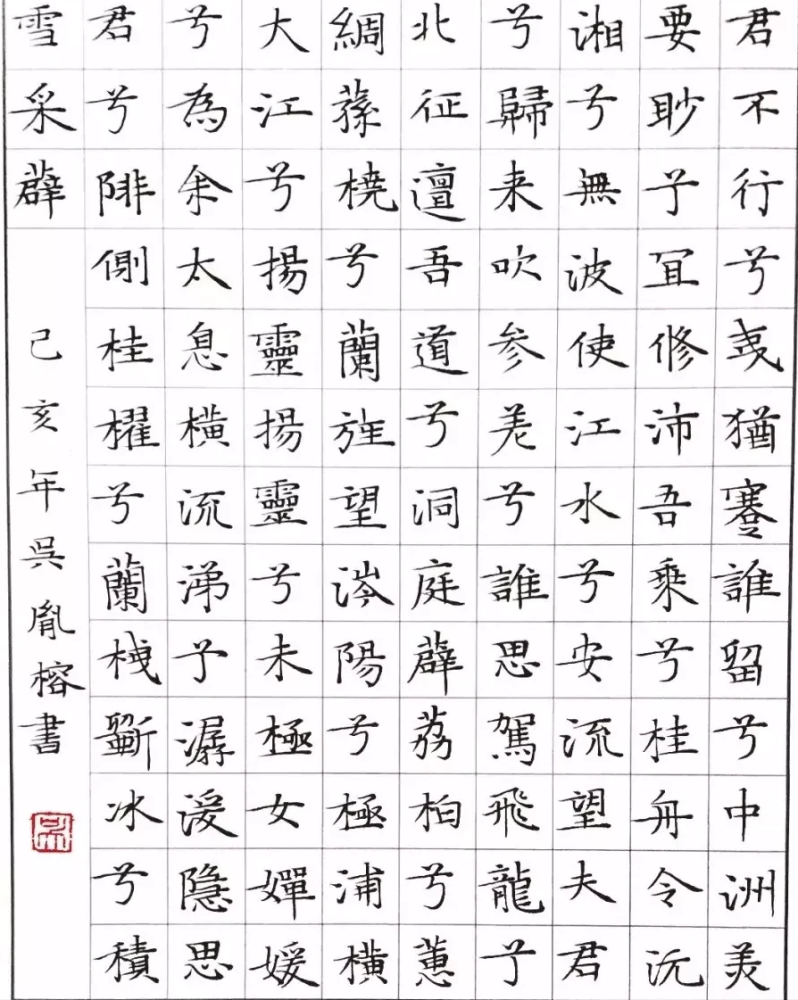 君不行兮夷猶蹇誰留兮中洲美
要眇予冝修沛吾乗兮桂舟令沅
湘兮無波使江水兮安流望夫君
兮歸来吹参差兮誰思駕飛龍兮
北征邅吾道兮洞庭薜荔柏兮蕙
綢蓀橈兮蘭旌望涔陽兮極浦橫
大江兮揚靈揚靈兮未極女嬋媛
兮為余太息橫流涕予潺湲隱思
君兮陫側桂櫂兮蘭枻斲冰兮積
雪采薜
己亥年吳胤榕書